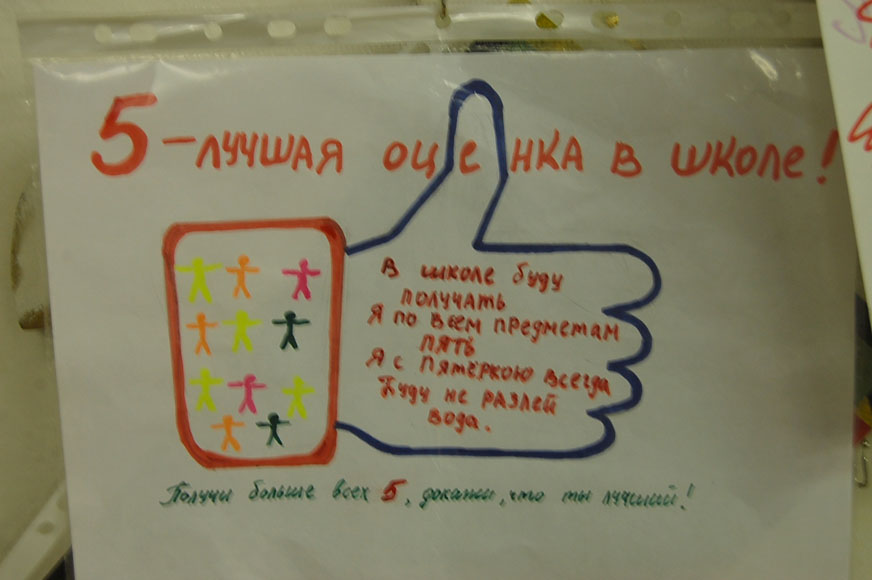 5 - ЛУЧШАЯ ОЦЕНКА В ШКОЛЕ!
В школе буду
получать
Я по всем предметам
пять
Я с пятёркою всегда
Буду не разлей
вода.
Получи больше всех 5, докажи, что ты лучший!